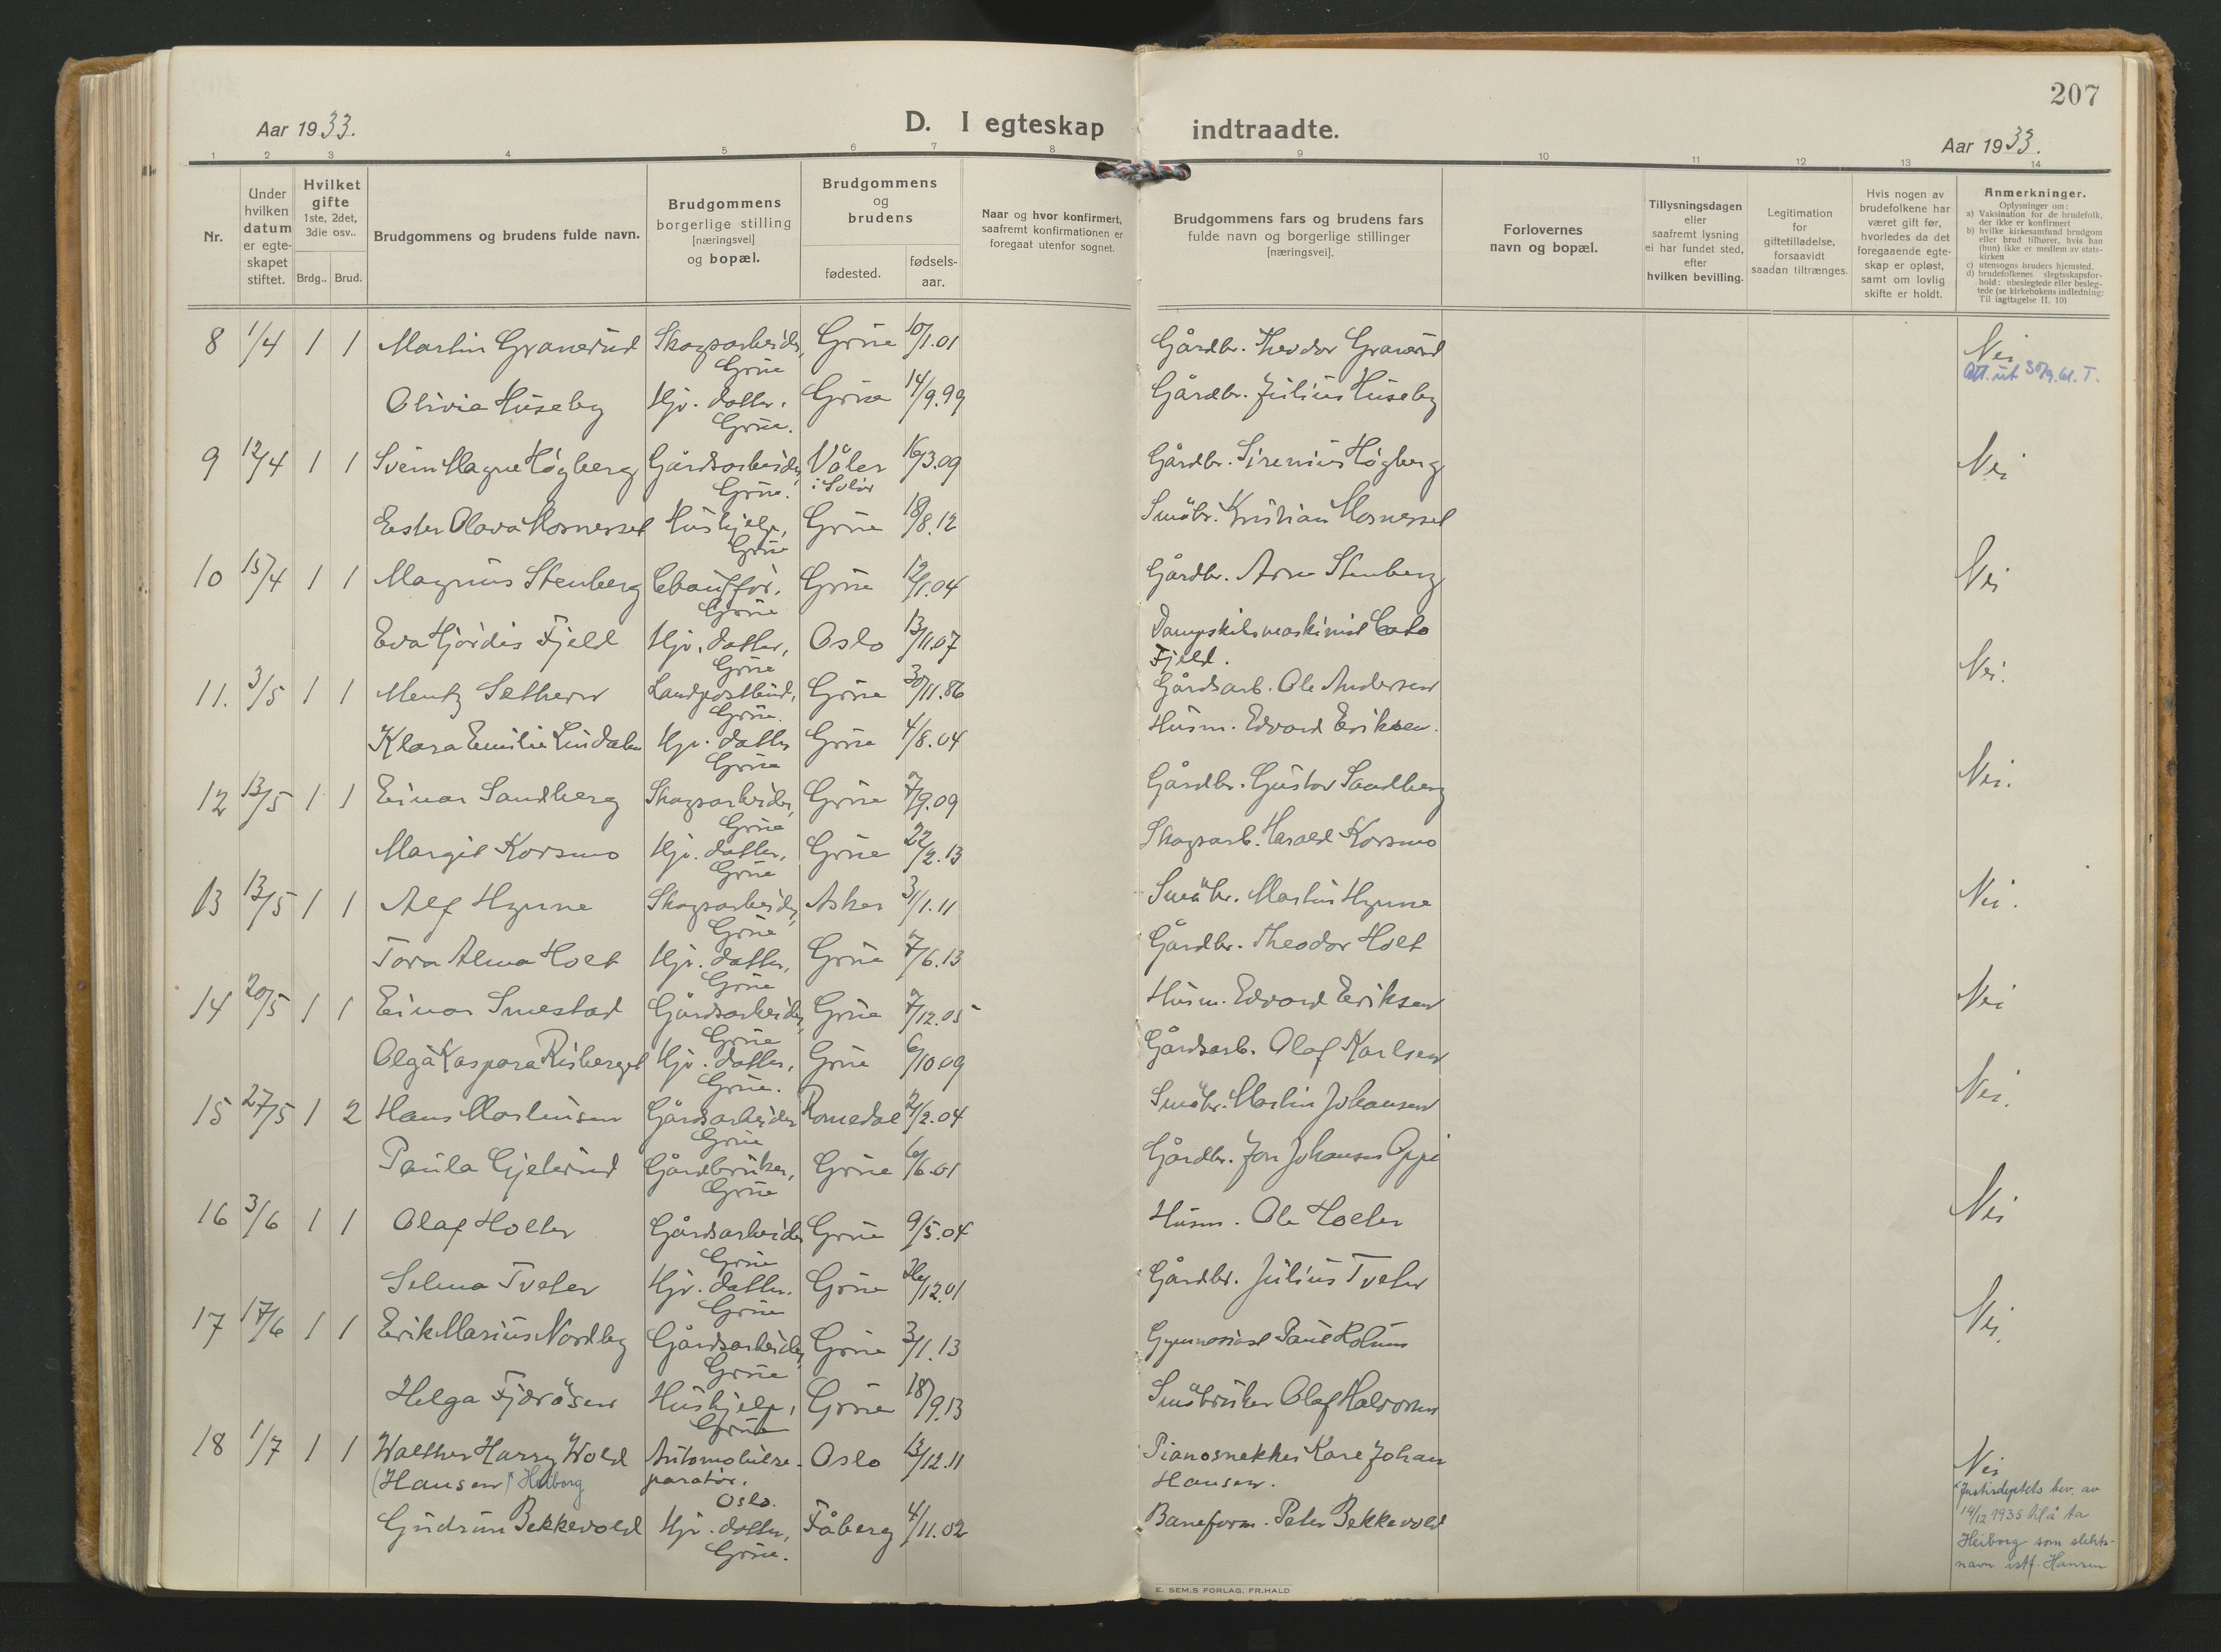 207
Aar 1933.
D. I egteskap indtraadte.
Aar 1933.
1 2 3 4 5 6 7 8 9 10 11 12 13 14
Nr.
Under hvilken datum er egte-skapet stiftet.
Hvilket gifte
1ste, 2det, 3die osv..
Brdg.. Brud.
Brudgommens og brudens fulde navn.
Brudgommens
borgerlige stilling
[næringsvei]
og bopæl.
Brudgommens
og
brudens
fødested.
fødsels-
aar.
Naar og hvor konfirmert,
saafremt konfirmationen er
foregaat utenfor sognet.
Brudgommens fars og brudens fars
fulde navn og borgerlige stillinger
[næringsvei].
Forlovernes
navn og bopæl.
Tillysningsdagen
eller
saafremt lysning
ei har fundet sted,
efter
hvilken bevilling.
Legitimation
for
giftetilladelse,
forsaavidt
saadan tiltrænges.
Hvis nogen av
brudefolkene har
været gift før,
hvorledes da det
foregaaende egte-
skap er opløst,
samt om lovlig
skifte er holdt.
Anmerkninger.
Oplysninger om:
a) Vaksination for de brudefolk,
der ikke er konfirmert
b) hvilke kirkesamfund brudgom
eller brud tilhører, hvis han
(hun) ikke er medlem av stats-
kirken
c) utensogns bruders hjemsted.
d) brudefolkenes slegtsskapsfor-
hold: ubeslegtede eller besleg-
tede (se kirkebokens indledning:
Til iagttagelse II. 10)
8 1/4 1 1 Martin Granerud Skogsarbeider, Grue 10/1.01 Gårdbr. Theodor Granerud Nei
Grue
Att. ut 30/9.61. T.
Olivia Huseby Hjv. datter. Grue 14/9.99 Gårdbr. Julius Huseby
Grue.
9 12/4 1 1 Svein Magne Høgberg Gårdsarbeider, Våler 16/3.09 Gårdbr. Sirenius Høgberg Nei
Grue. i Solør
Ester Olava Mosnesset Hushjelp, Grue 18/8.12 Småbr. Kristian Mosnesset
Grue
10 15/4 1 1 Magnus Stenberg Chauffør. Grue 12/1.04 Gårdbr. Arne Stenberg Nei
Grue
Eva Hjørdis Fjeld Hjv. datter, Oslo 13/11.07 Dampskibsmaskinist Cato
Grue Fjeld.
11. 3/5 1 1 Mentz Sethern Landpostbud, Grue 30/11.86 Gårdsarb. Ole Andersen Nei.
Grue.
Klara Emilie Lindalen Hjv. datter Grue 4/8.04 Husm. Edvard Eriksen.
Grue
12 13/5 1 1 Einar Sandberg Skogsarbeider, Grue 7/9.09 Gårdbr. Gustav Sandberg Nei.
Grue
Margit Korsmo Hjv. datter, Grue 22/2.13 Skogsarb. Harald Korsmo
Grue
13 13/5 1 1 Alf Hynne Skogsarbeider, Asker 3/1.11 Småbr. Martin Hynne Nei.
Grue
Tora Alma Holt Hjv. datter, Grue 7/6.13 Gårdbr. Theodor Holt
Grue
14 20/5 1 1 Einar Smestad Gårdsarbeider, Grue 7/12.05 Husm. Edvard Eriksen Nei
Grue
Olga Kaspara Risberget Hjv. datter, Grue 6/10 09 Gårdsarb. Olaf Karlsen
Grue.
15 27/5 1 2 Hans Martinsen Gårdsarbeider Romedal 2/2.04 Småbr. Martin Johansen Nei.
Grue
Paula Gjelerud Gårdbruker, Grue 6/6.01 Gårdbr. Jon Johansen Oppi
Grue
16 3/6 1 1 Olaf Holter Gårdsarbeider Grue 9/5.04 Husm. Ole Holter Nei
Grue
Selma Tveter Hjv. datter. Grue 26/12.01 Gårdbr. Julius Tveter
Grue
17 17/6 1 1 Erik Marius Nordby Gårdsarbeider, Grue 3/1.13 Gymnasiast Paul Holum Nei.
Grue
Helga Fjæråsen Hushjelp, Grue 18/9.13 Småbruker Olaf Halvorsen
Grue
18 1/7 1 1 Walther Harry Wold Automobilre- Oslo 13/12.11 Pianosnekker Kare Johan Nei
(Hansen) x Heiborg paratør. Hansen.
Oslo.
Gudrun Bekkevold Hjv. datter, Fåberg 4/11.02 Baneform. Peter Bekkevold
Grue.
x Justisdeptets bev. av
14/12 1935 til å ta
Heiborg som slekts-
navn istf. Hansen
E. SEM,S FORLAG, FR.HALD